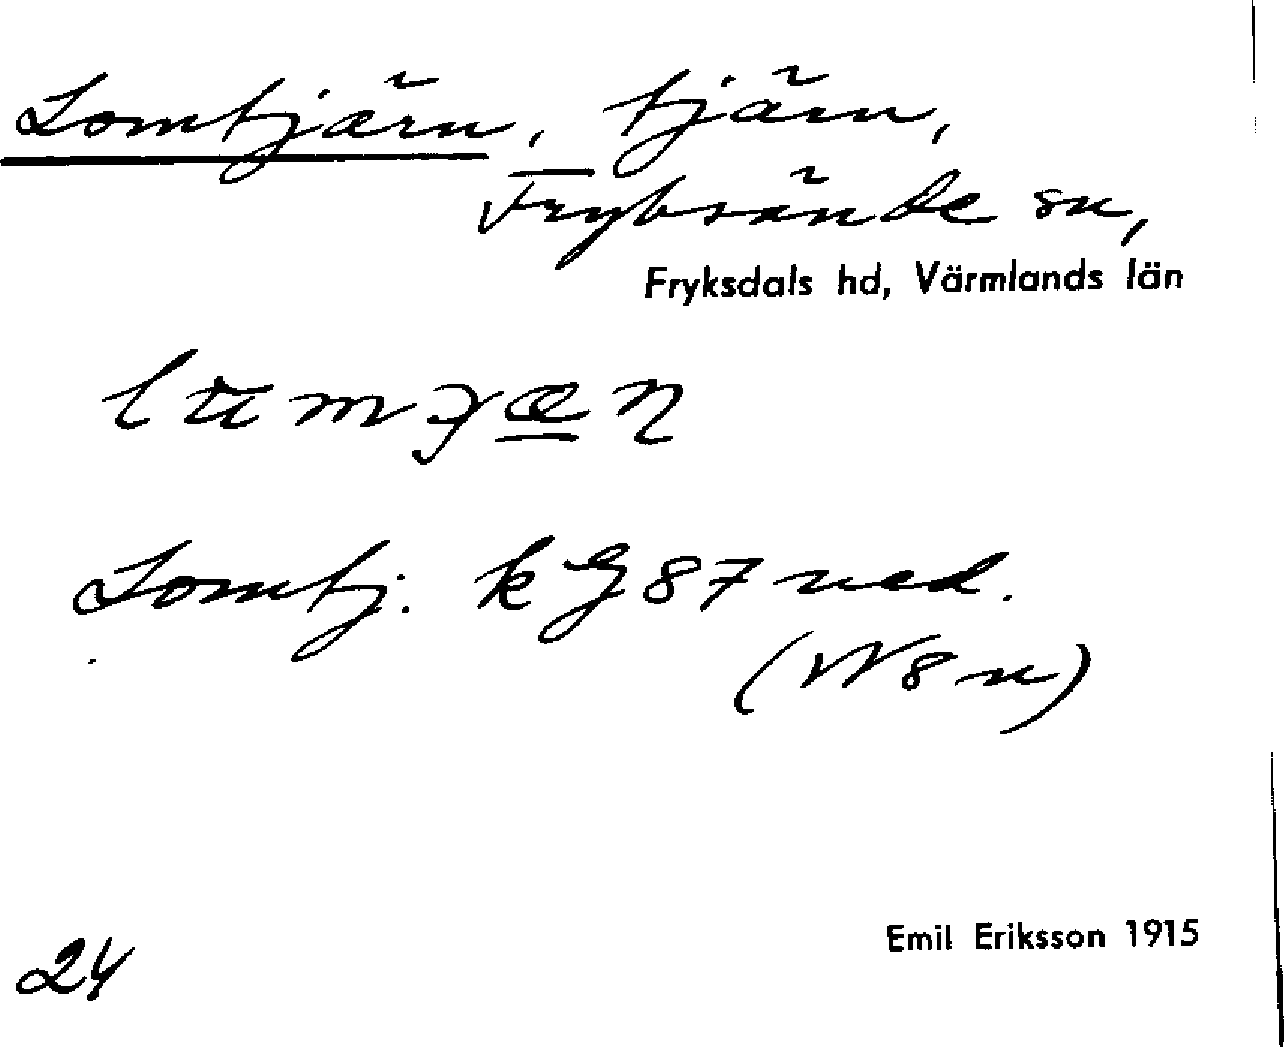 Lomtjärn, tjärn,
Fryksände sn,
Fryksdals hd, Värmlands län
Lomtj. k G 87 ned.
(W8n)
Emil Eriksson 1915
24